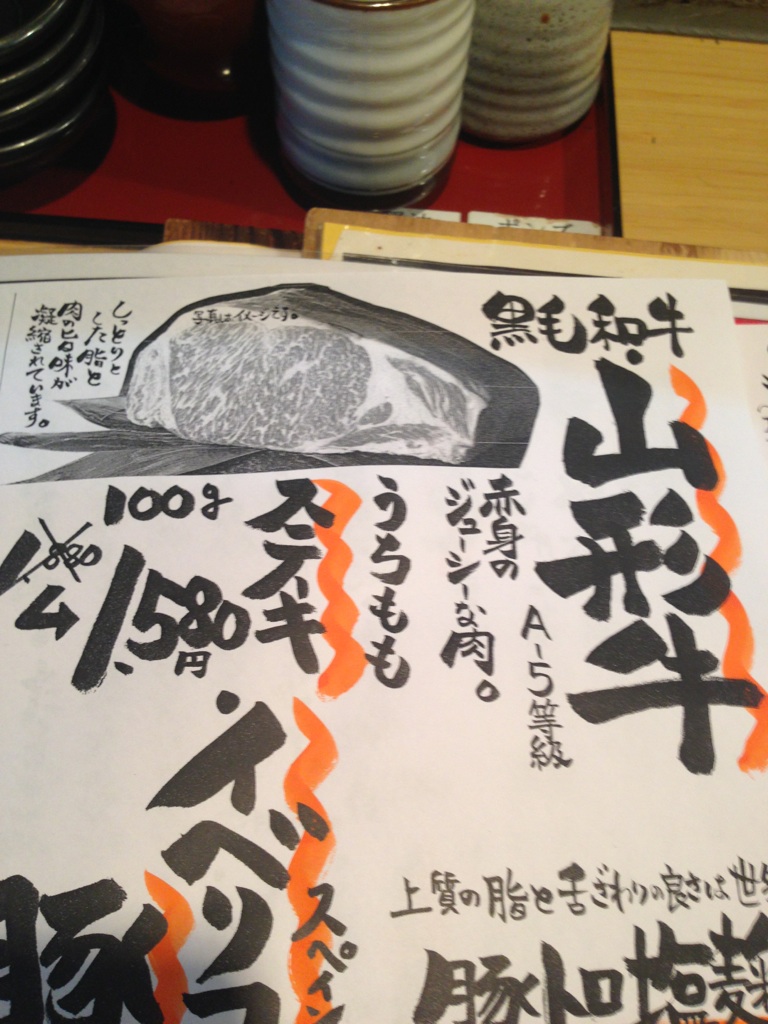 黒毛和牛
山形牛
A-5等級
赤身の
ジューシーな肉。
うちもも
ステーキ
100g
1,580円
写真はイメージです。
しっとりと
した脂と
肉の旨味が
凝縮されています。
上質の脂と舌ざわりの良さは世
豚トロ塩麹
スペイン
イベリコ
豚